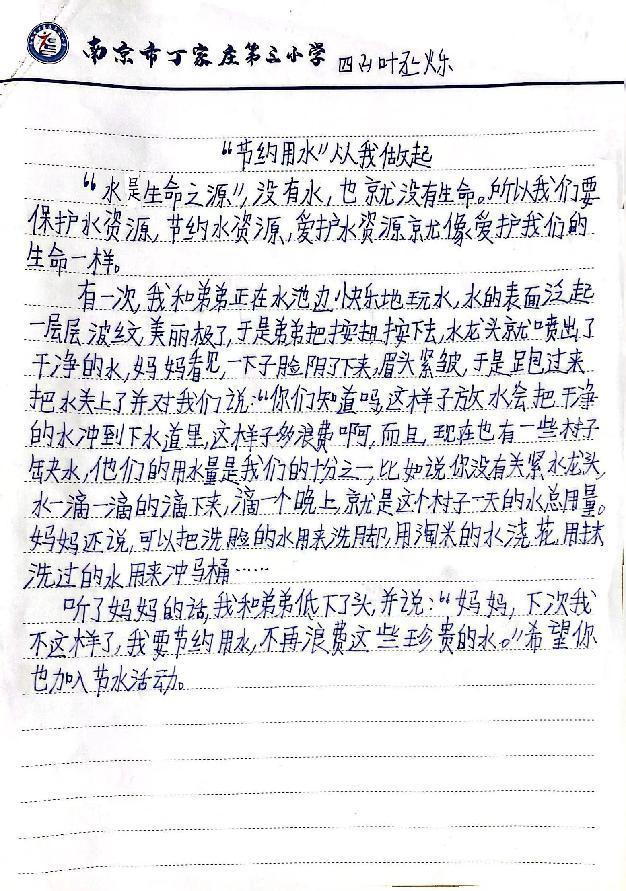 南京市丁家庄第三小学 四3叶丞烁
“节约用水”从我做起
“水是生命之源”，没有水，也就没有生命。所以我们要
保护水资源，节约水资源，爱护水资源就像爱护我们的
生命一样。
有一次，我和弟弟正在水池边快乐地玩水，水的表面泛起
一层层波纹，美丽极了，于是弟弟把按扭按下去，水龙头就喷出了
干净的水，妈妈看见，一下子脸阴了下来，眉头紧皱，于是跑过来
把水关上了并对我们说：“你们知道吗，这样子放水会把干净
的水冲到下水道里，这样子多浪费啊，而且，现在也有一些村子
缺水，他们的用水量是我们的十分之一，比如说你没有关紧水龙头，
水一滴一滴的滴下来，滴一个晚上，就是这个村子一天的水总用量。
妈妈还说，可以把洗脸的水用来洗脚，用淘米的水浇花，用抹
洗过的水用来冲马桶……
听了妈妈的话，我和弟弟低下了头，并说：“妈妈，下次我
不这样了，我要节约用水，不再浪费这些珍贵的水。”希望你
也加入节水活动。